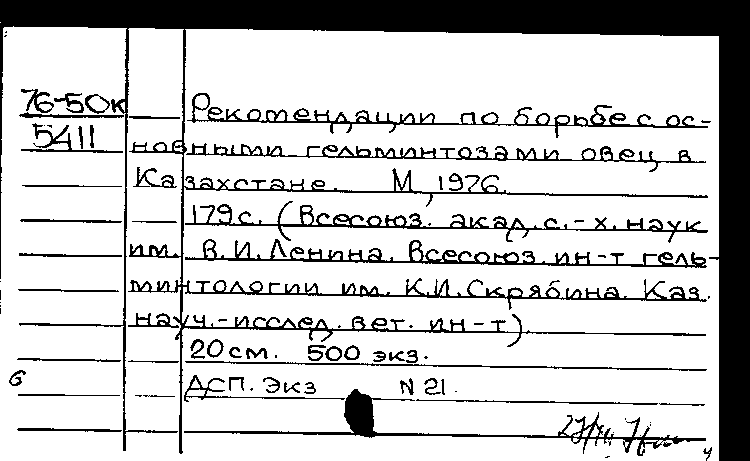 76-50к Рекомендации по борьбе с ос-
5411 новными гельминтозами овец в
Казахстане. М, 1976.
179с. (Всесоюз. акад. с.-х. наук
им. В.И.Ленина. Всесоюз. ин-т гель-
минтологии им. К.И.Скрябина. Каз.
науч.-исслед. вет. ин-т)
20см. 500 экз.
б ДСП. Экз N 21.